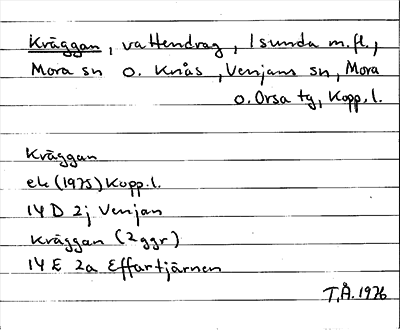 Kräggan, vattendrag, Isunda m.fl.,
Mora sn o. Knås, Venjans sn, Mora
o. Orsa tg, Kopp. l.
Kräggan
ek (1975) Kopp. l.
14 D 2j Venjan
Kräggan (2 ggr)
14 E 2a Effartjärnen
T.Å. 1976